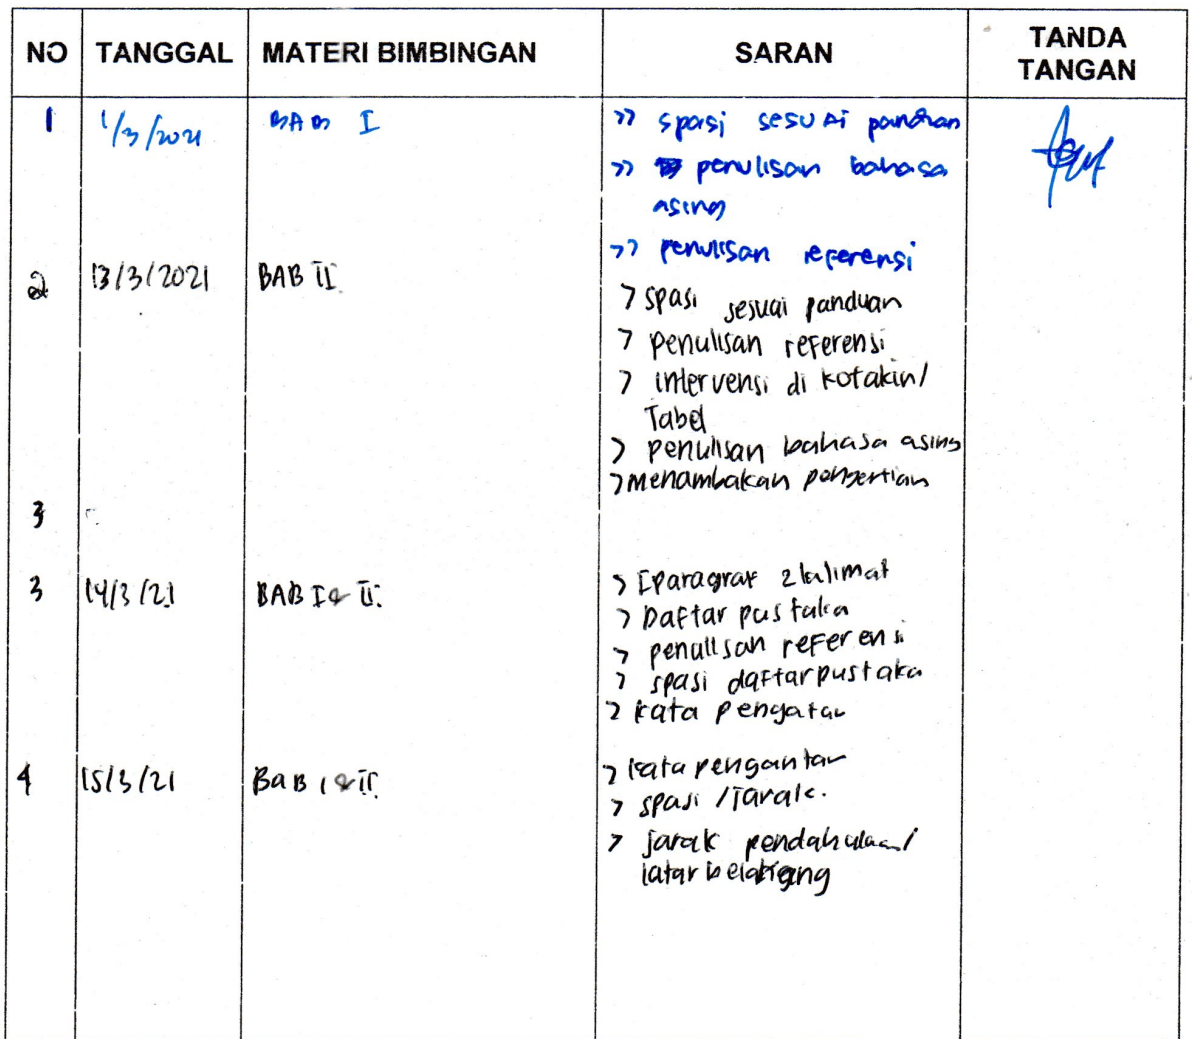 NO TANGGAL MATERI BIMBINGAN SARAN TANDA TANGAN
1 1/3/2021 BAB I >> spasi sesuai panduan
>> penulisan bahasa
asing
>> penulisan referensi
2 13/3/2021 BAB II
> spasi sesuai panduan
> penulisan referensi
> intervensi di kotakin/
Tabel
> penulisan bahasa asing
> menambakan pengertian
3
3 14/3/21 BAB I & II. > 1 paragraf 2 kalimat
> Daftar pustaka
> penulisan referensi
> spasi daftar pustaka
> kata pengatar
4 15/3/21 BaB I & II. > kata pengantar
> spasi / Jarak.
> jarak pendahuluan/
latar belakang